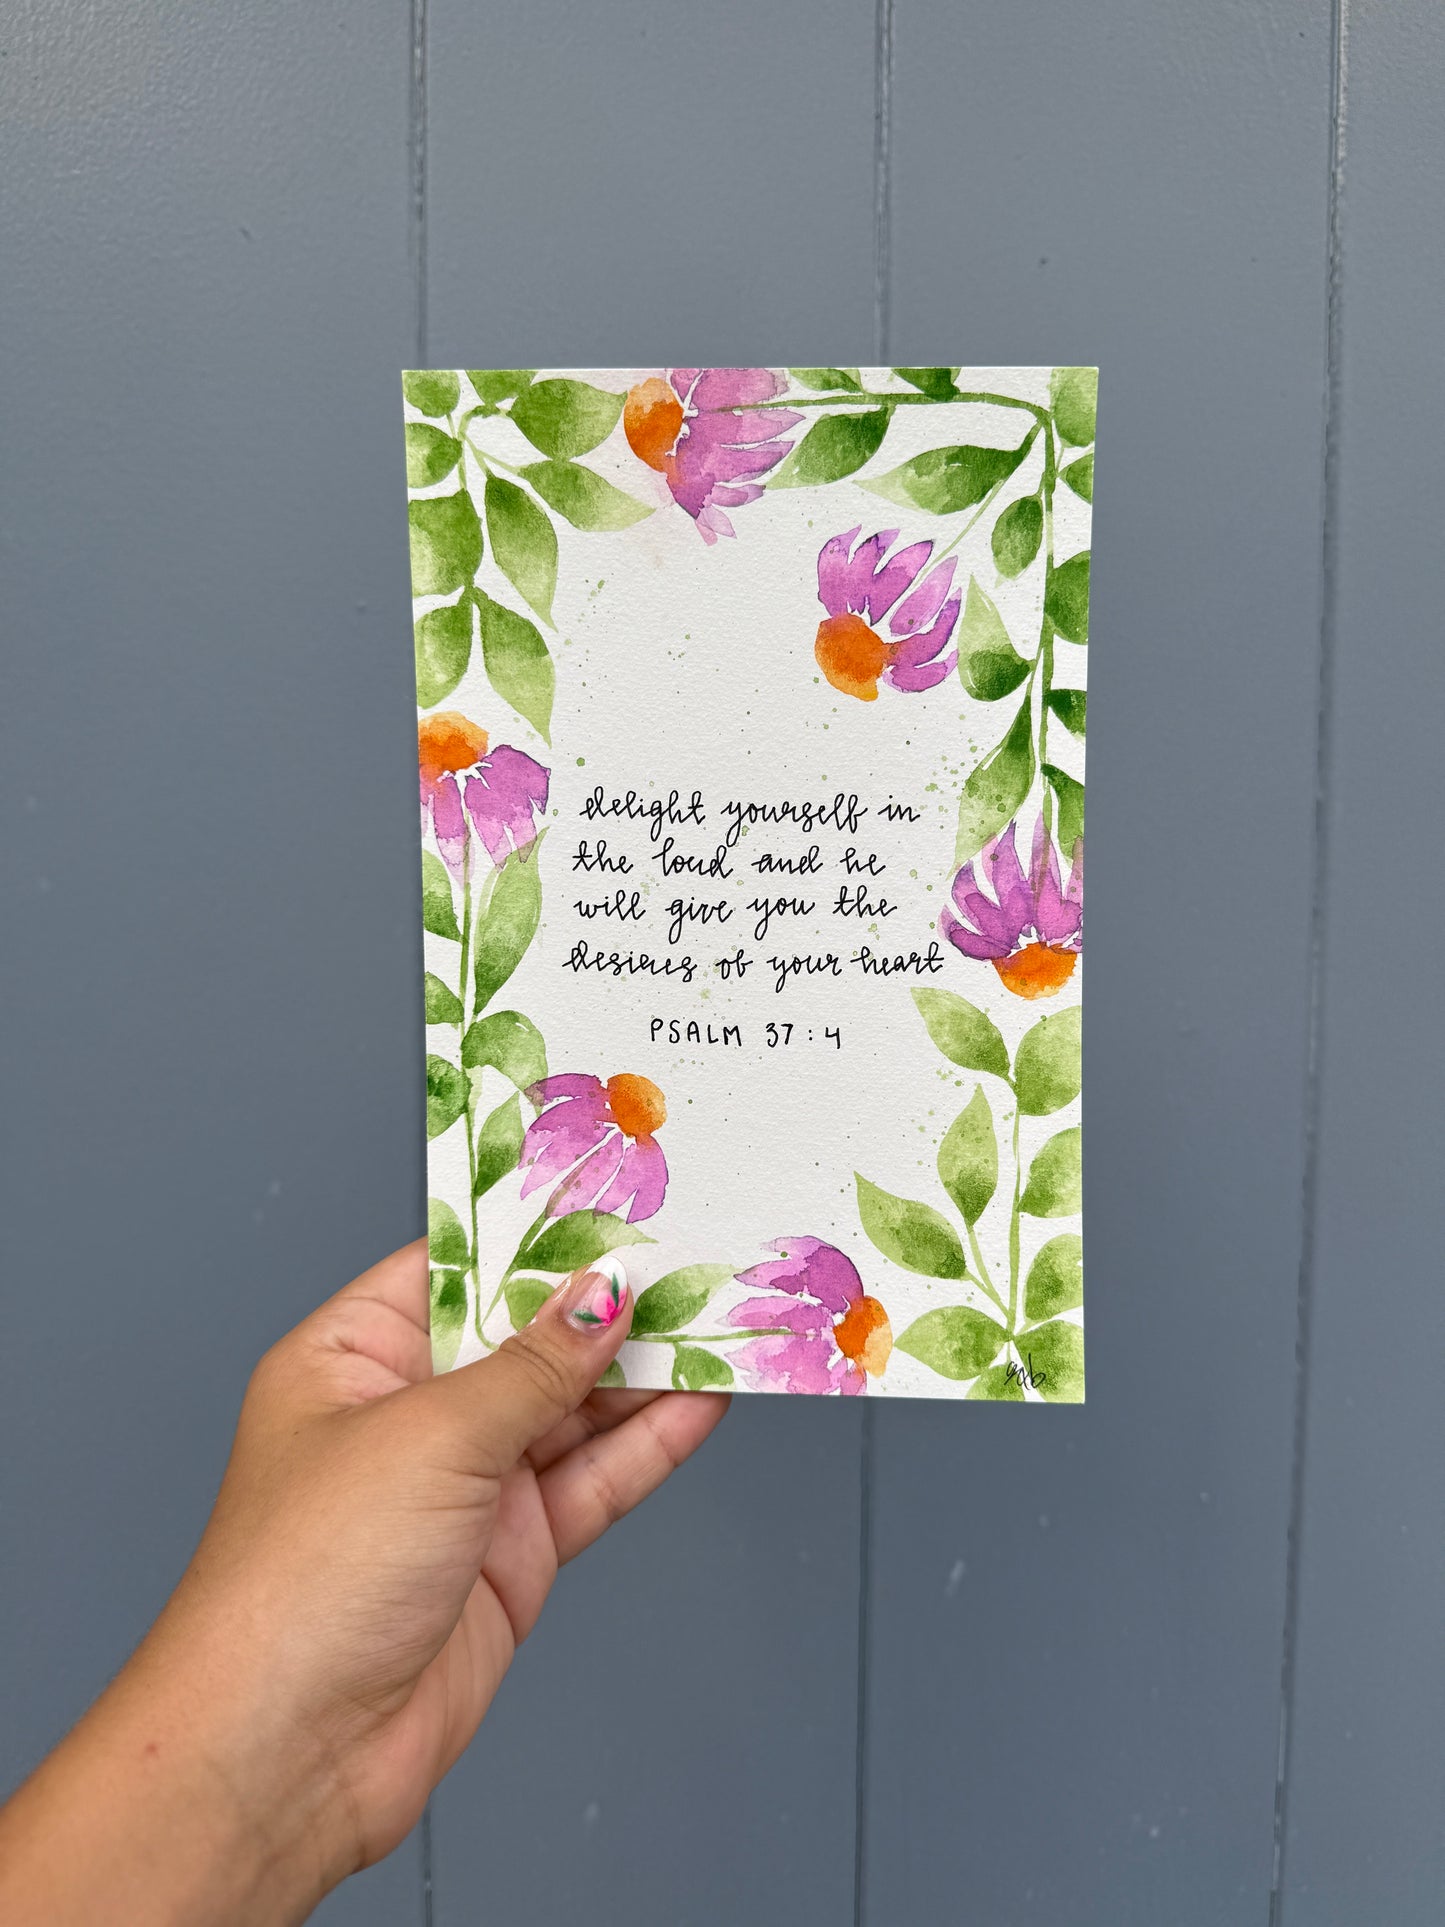 delight yourself in
the lord and he
will give you the
desires of your heart
PSALM 37:4